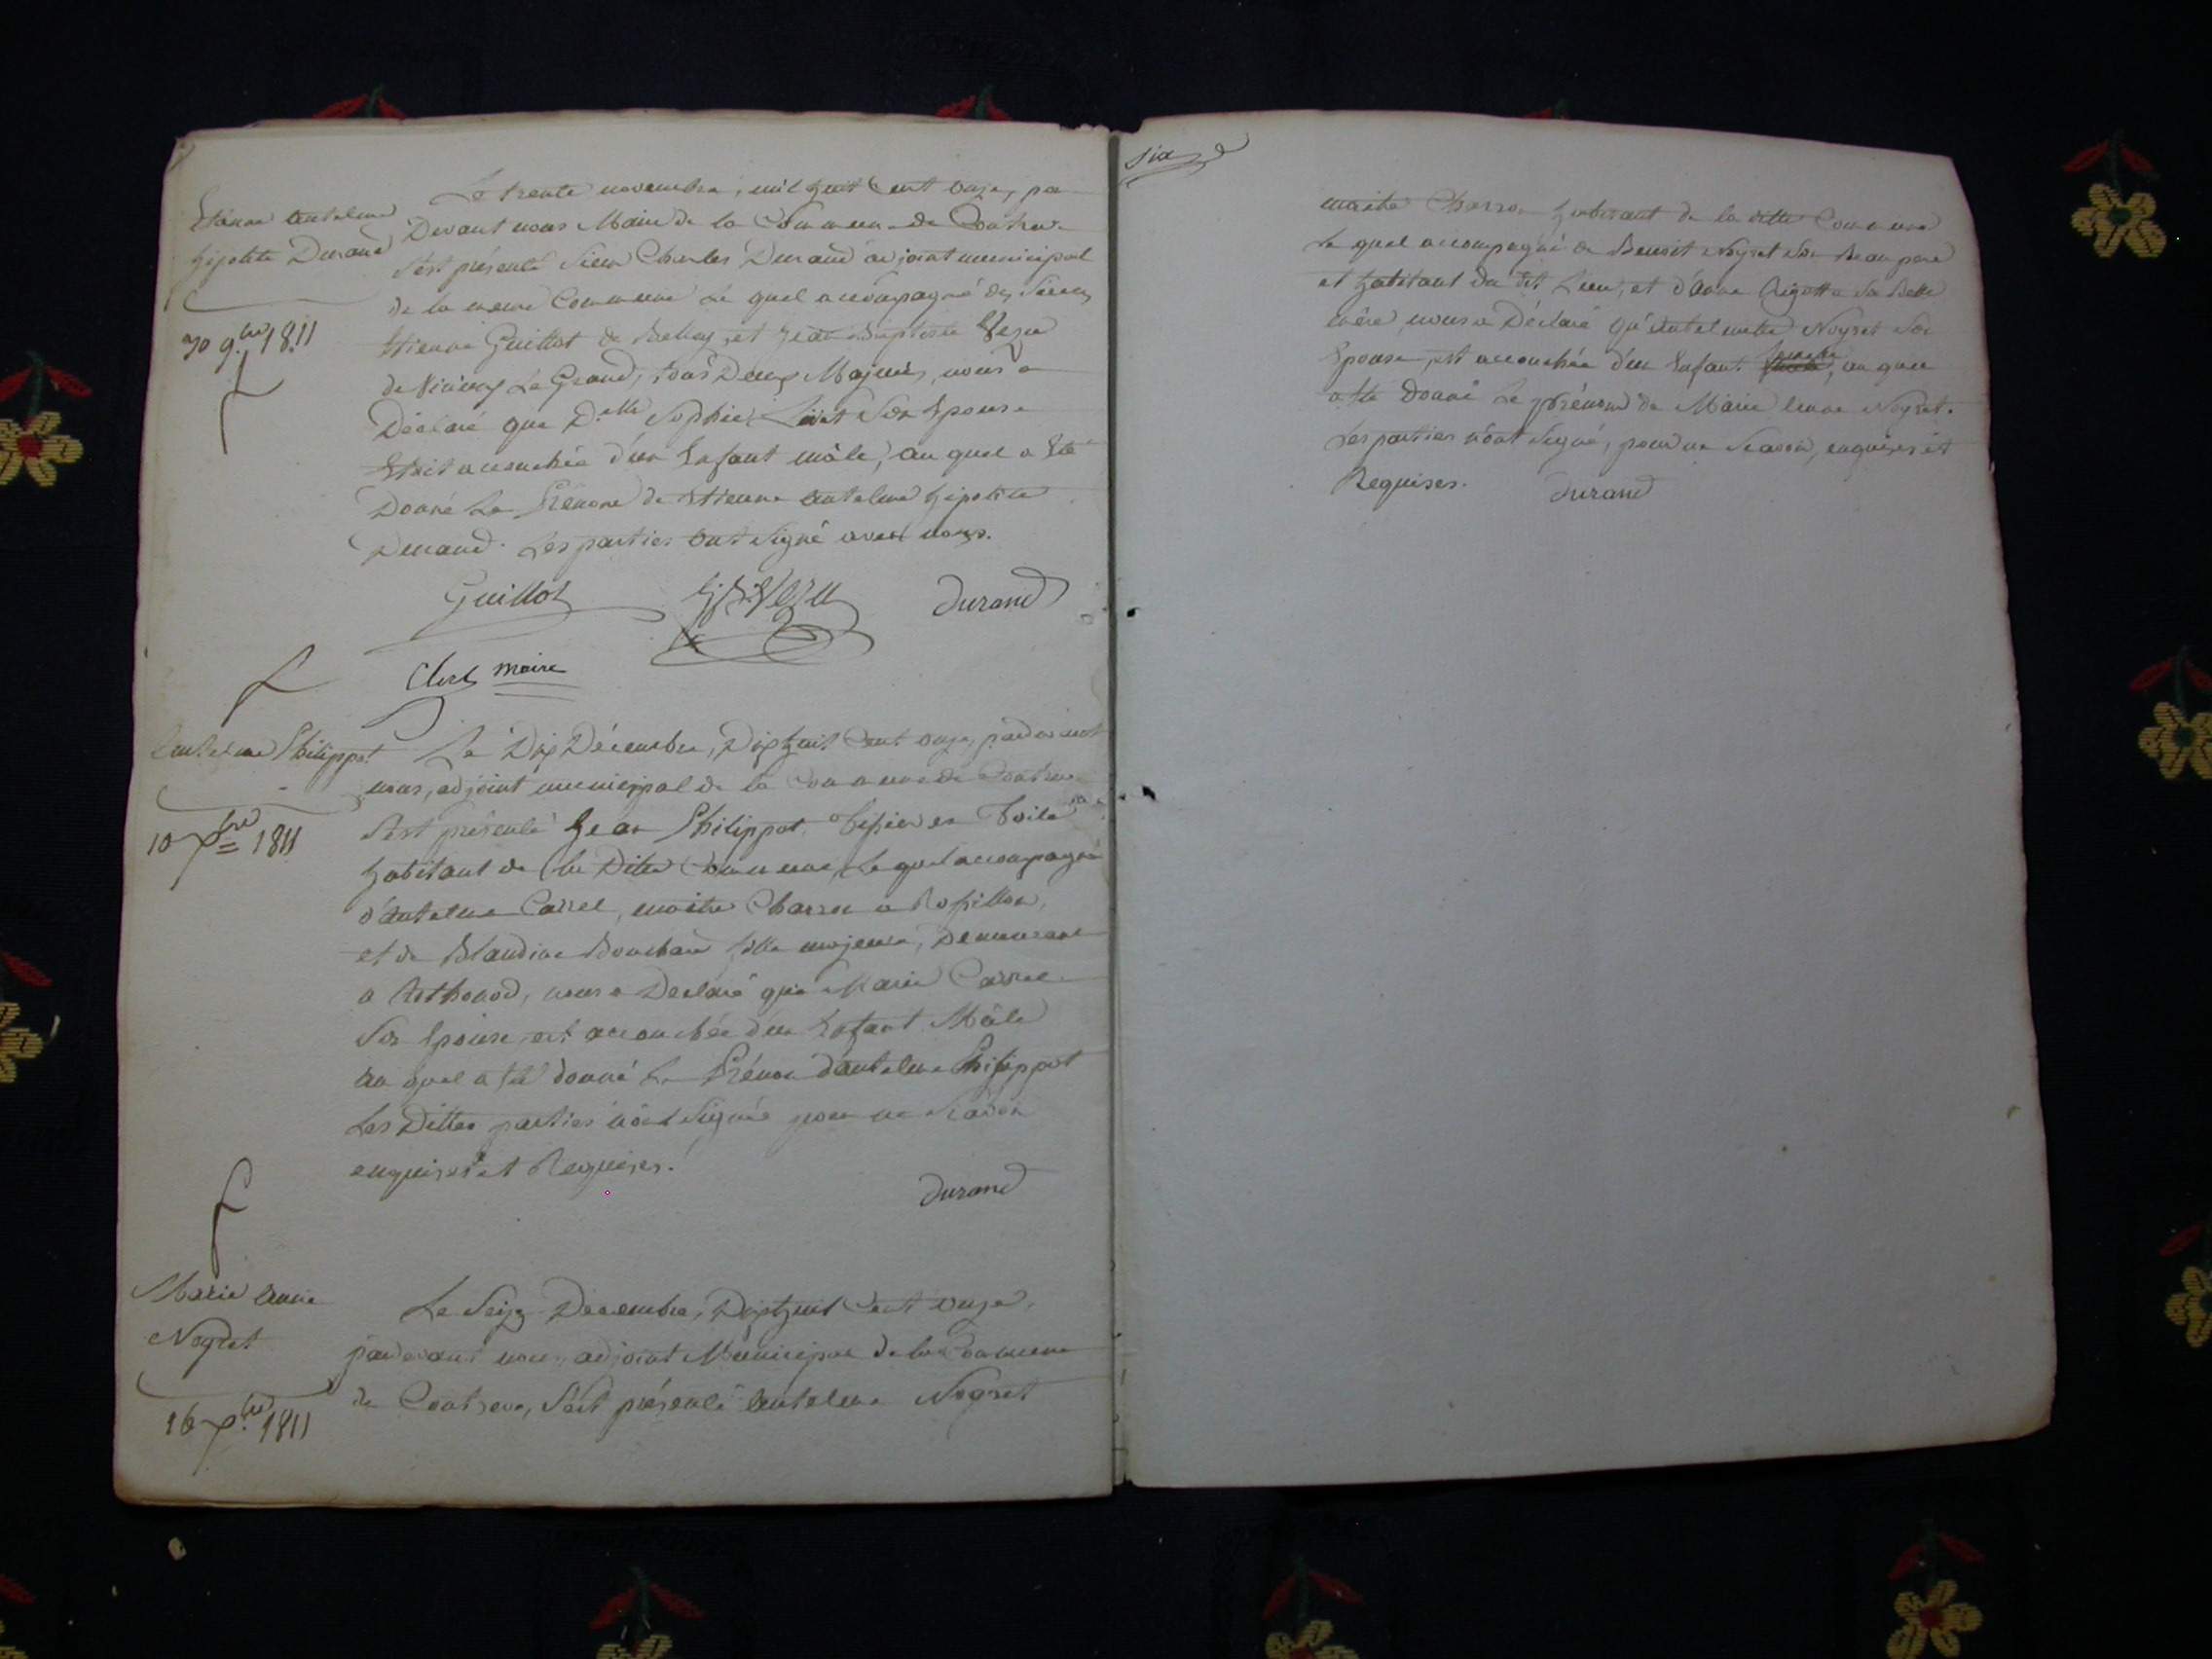 Etienne antelme
hipolite Durand
30 9.bre 1811
Le trente novembre, mil huit Cent onze, par
Devant nous Maire de la Commune de Contrevoz
s'est présenté Sieur Charles Durand adjoint municipal
de la meme Commune Le quel accompagné des Sieurs
Etienne Guillot de Belley, et Jean Baptiste Vezu
de Virieux Le Grand, tous Deux Majeurs, nous a
Déclaré que D.elle Sophie Son Epouse
Etait accouchée d'un Enfant mâle, au quel a Eté
Donné Le Prénom de Etienne antelme hipolite
Durand. Les parties ont Signé avec nous.
Guillot Vezu Durand
Clerc maire
antelme Philippot
10 Xbre 1811
Le Dix Décembre, Dixhuit Cent onze, pardevant
nous, adjoint municipal de la Commune de Contrevoz
S'est présenté Jean Philippot, Tissier en Toile
habitant de la Ditte Commune, Le quel accompagné
d'antelme Carrel, maitre Charron a Rossillon,
et de Blandine Bouchard fille majeure, Demeurant
a Arthonod, nous a Déclaré que Marie Carrel
Son Epouse, est accouchée d'un Enfant Mâle
au quel a été donné Le Prénom d'antelme Philippot
Les Dittes parties n'ont Signé pour ne Savoir
enquises et Requises.
Durand
Marie anne
Neyret
16 Xbre 1811
Le Seize Décembre, Dixhuit Cent onze,
pardevant nous, adjoint Municipal de la Commune
de Contrevoz, S'est présenté antelme Neyret
six
maitre Charron habitant de la ditte Commune
Le quel accompagné de Benoit Neyret Son Beau pere
et habitant du dit Lieu, et d'anne Rigotte Sa Belle
mère, nous a Déclaré qu'antelmette Neyret Son
Epouse, est accouchée d'un Enfant, au quel
a été Donné Le prénom de Marie anne Neyret.
Les parties n'ont Signé, pour ne Savoir, enquises et
Requises. Durand